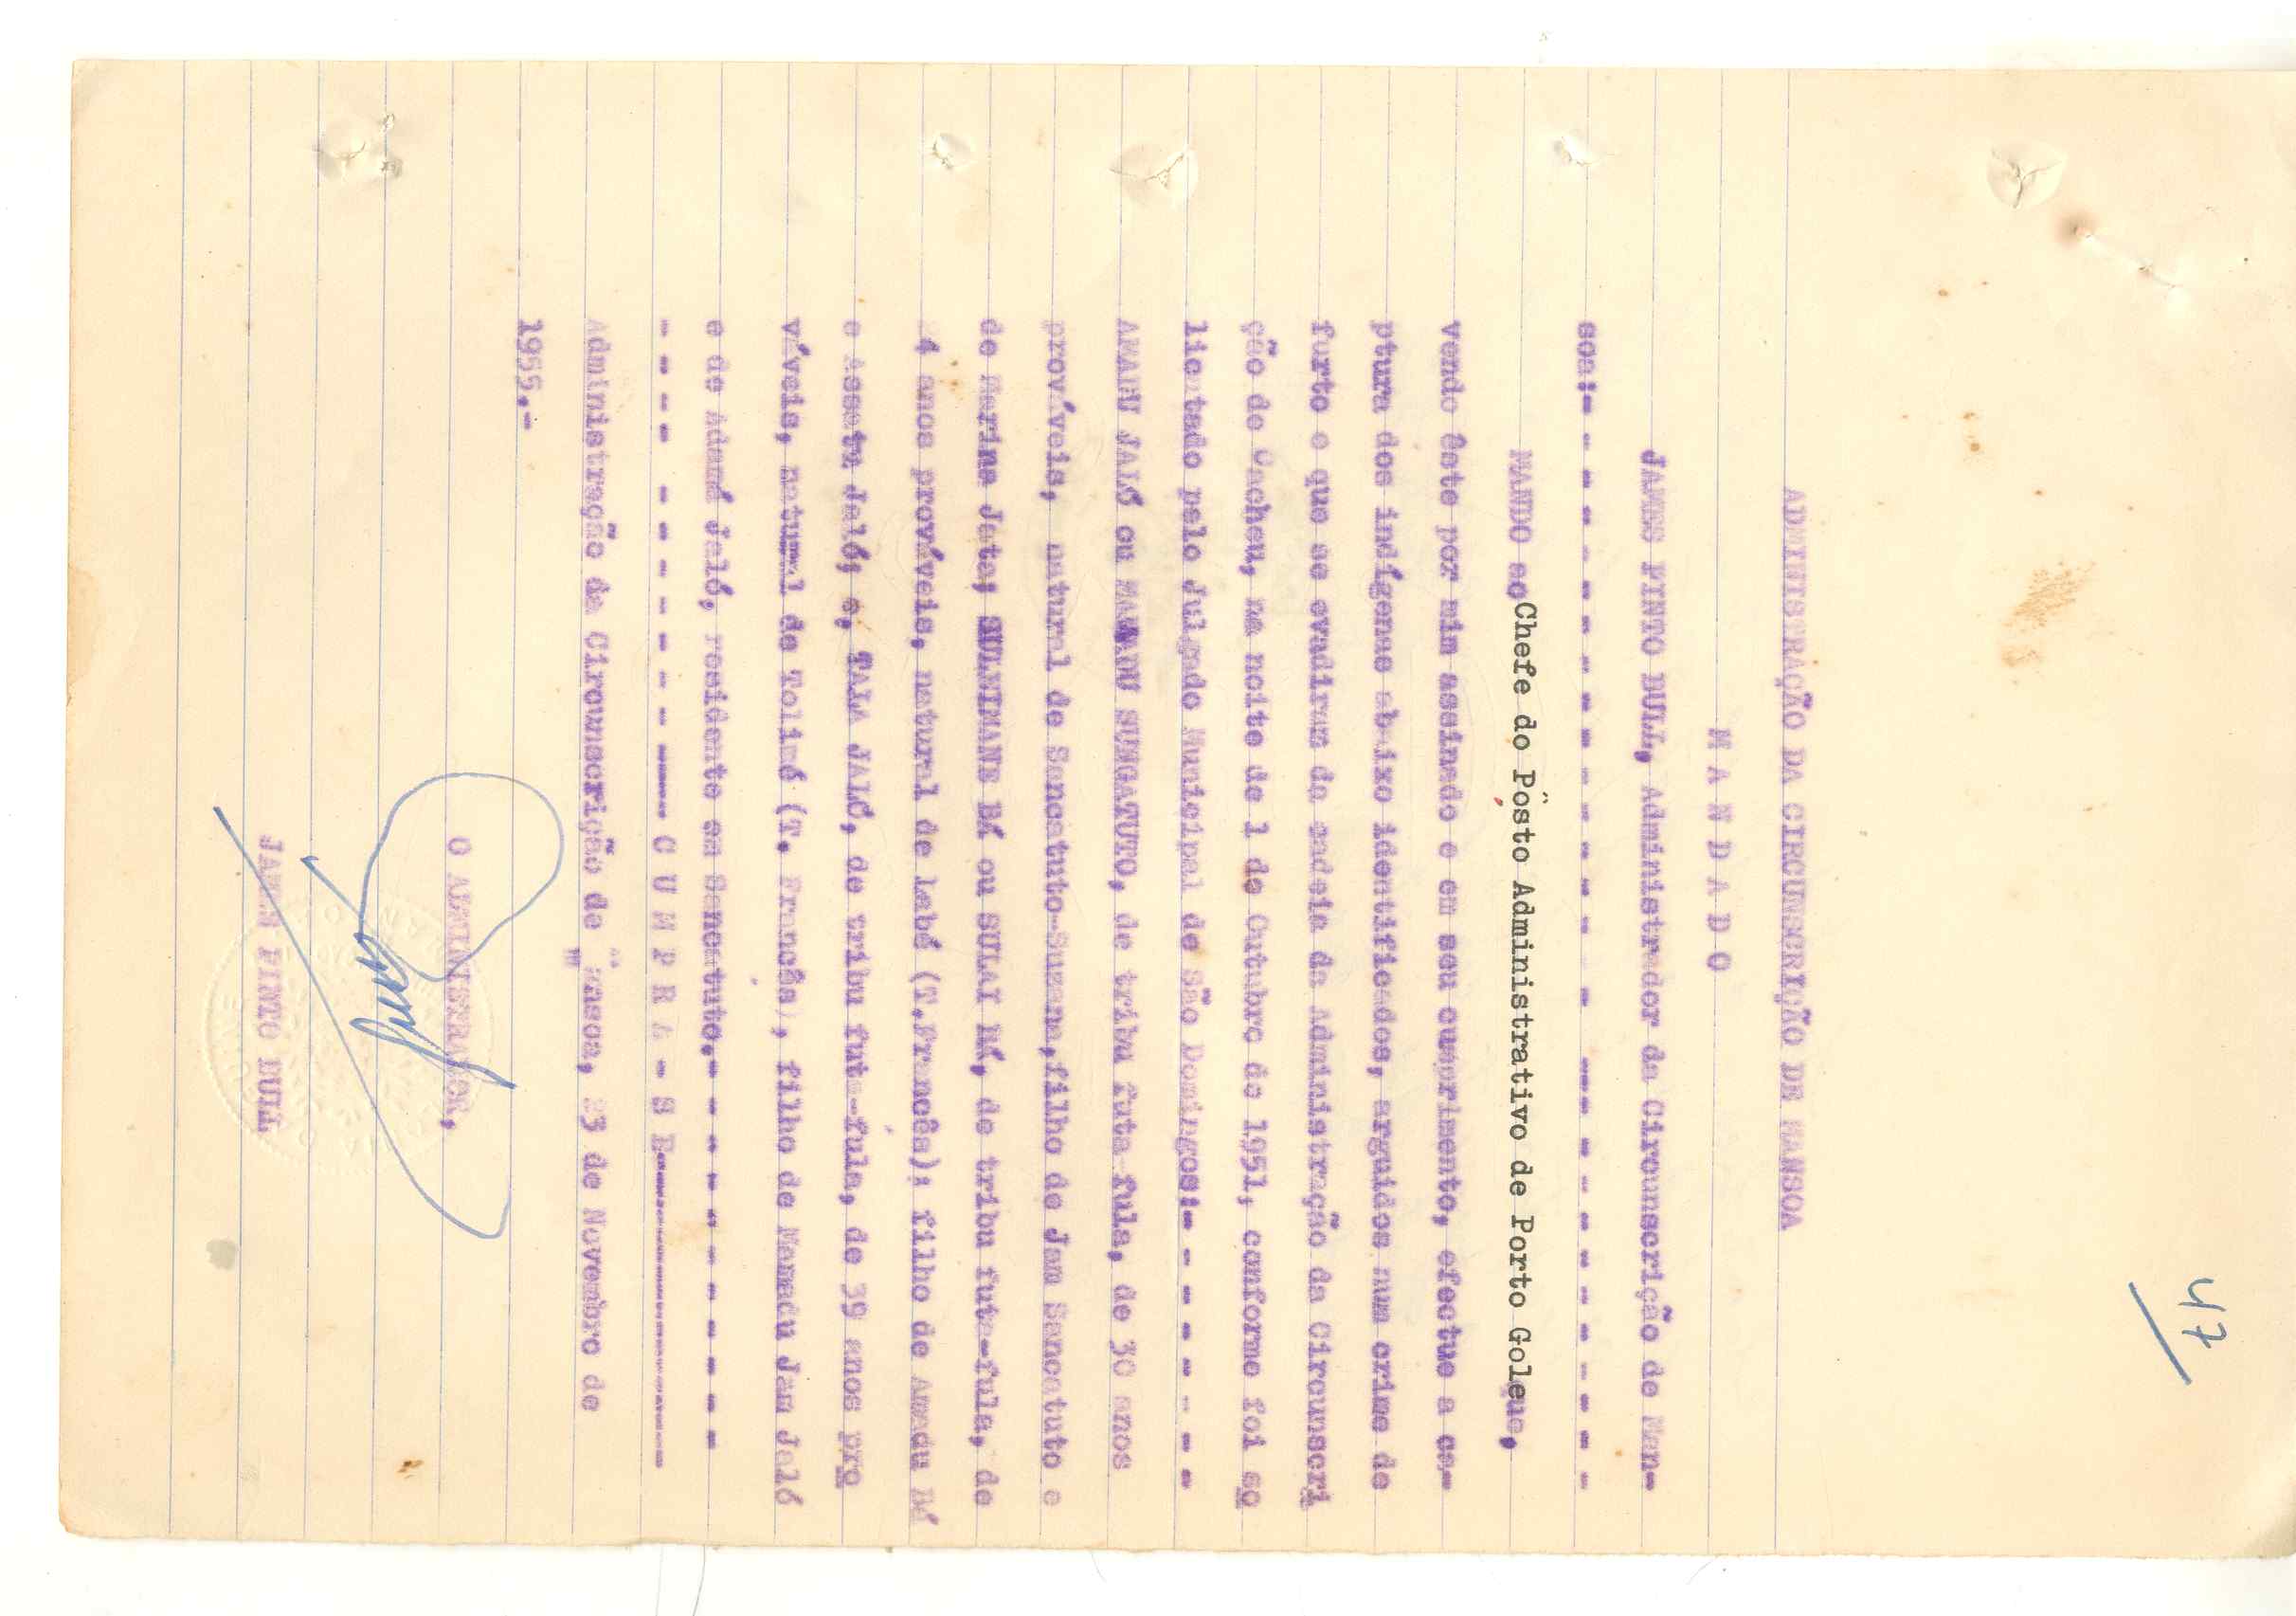 47
ADMINISTRAÇÃO DA CIRCUNSCRIÇÃO DE MANSOA
M A N D A D O
JAMES PINTO BULL, Administrador da Circunscrição de Man-
soa:- - - - - - - - - - - - - - - - - - - - - - - - - - - -
MANDO ao Chefe do Pôsto Administrativo de Porto Goleue,
vendo êste por mim assinado e em seu cumprimento, efectue a ca-
ptura dos indígenas abaixo identificados, arguidos num crime de
furto e que se evadiram da cadeia da Administração da Circunscri
ção de Cacheu, na noite de 1 de Outubro de 1951, conforme foi so
licitado pelo Julgado Municipal de São Domingos:- - - - - - - -
AMADU JALÓ ou MAMADU SUNGATUTO, de tribu futa fula, de 30 anos
prováveis, natural de Sancatuto-Suzana, filho de Jam Sancatuto e
de Marina Jata; SULEIMANE BÁ ou SULAI BÁ, de tribu futa-fula, de
4 anos prováveis, natural de Labé (T.Francês); filho de Amadu Bá
e Assatu Jaló; e, TALA JALÓ, de tribu futa-fula, de 39 anos pro
váveis, natural de Tolimé (T. Francês), filho de Mamadu Jam Jaló
e de Adamá Jaló, residente em Sancatuto,- - - - - - - - - - - -
- - - - - - - - - - - - - - C U M P R A - S E----------------
Administração da Circunscrição de Mansoa, 23 de Novembro de
1955.-
O ADMINISTRADOR,
JAMES PINTO BULL